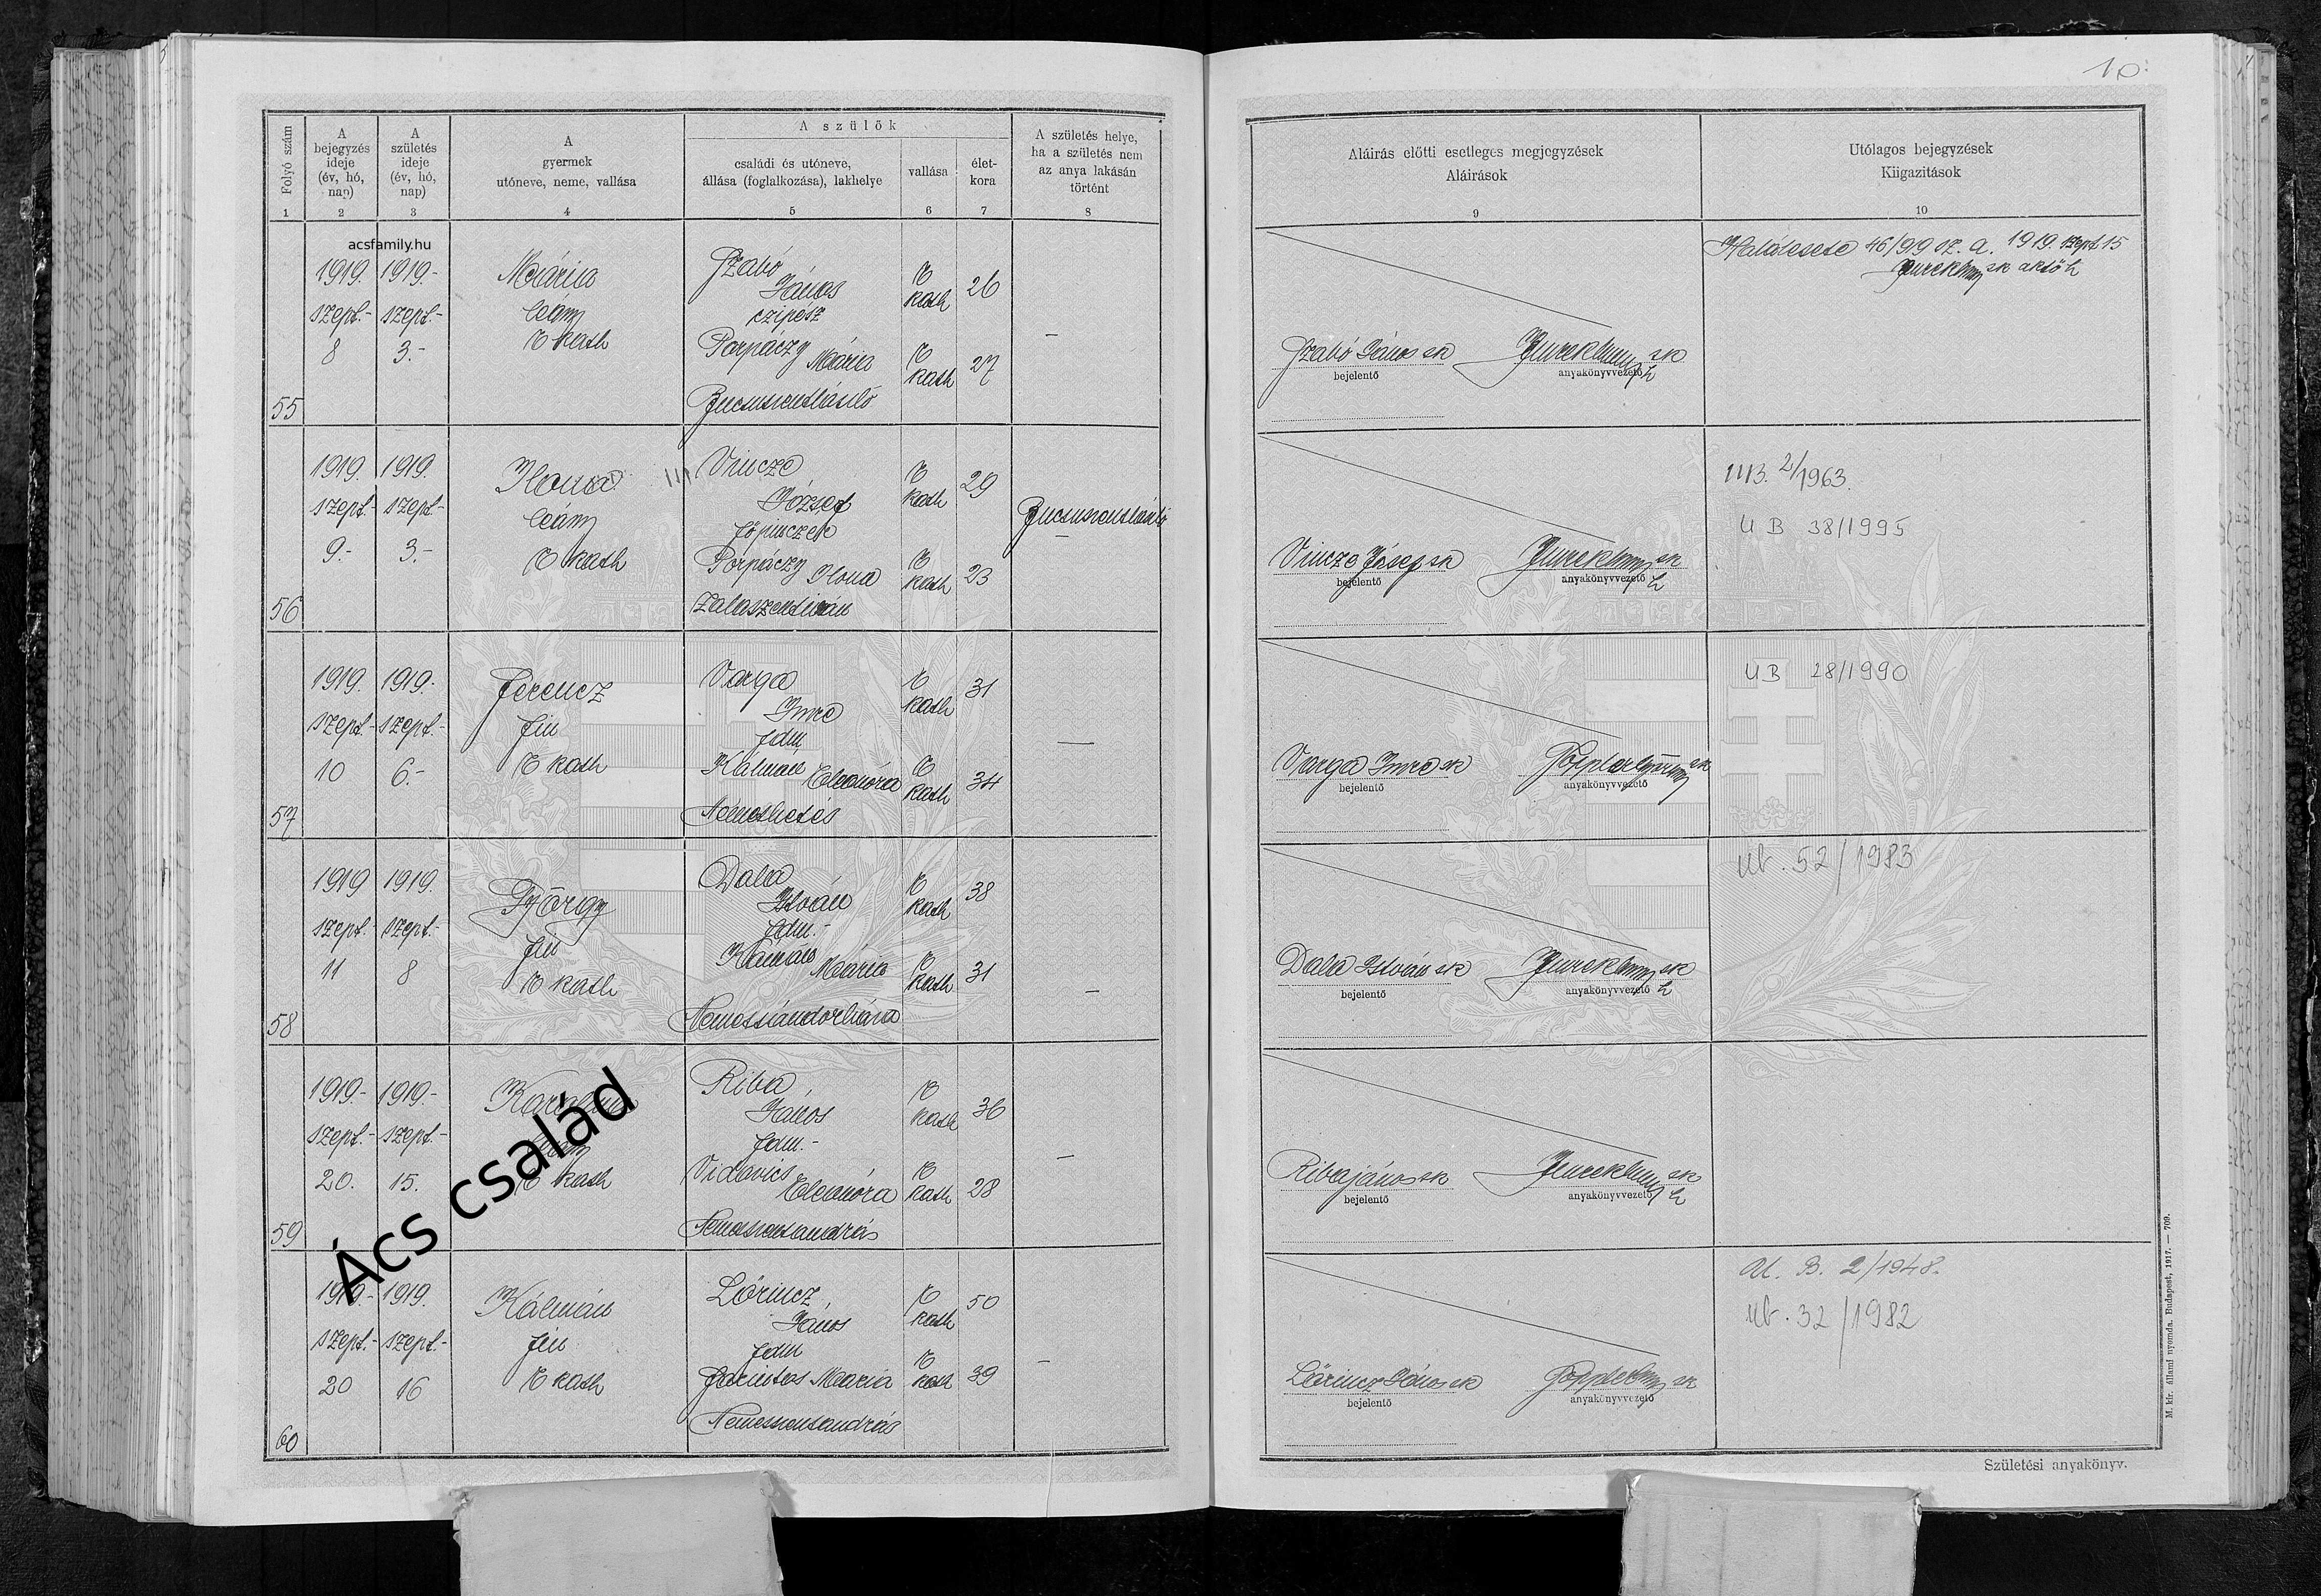 10.
Folyó szám
A bejegyzés ideje (év, hó, nap)
A születés ideje (év, hó, nap)
A gyermek utóneve, neme, vallása
A szülők
családi és utóneve, állása (foglalkozása), lakhelye
vallása
élet-kora
A születés helye, ha a születés nem az anya lakásán történt
1 2 3 4 5 6 7 8
Aláirás előtti esetleges megjegyzések
Aláirások
9
Utólagos bejegyzések
Kiigazitások
10
acsfamily.hu
55
1919. szept.- 8
1919.- szept.- 3.-
Mária
leány
r kath
Szabó
János
czipész
r kath 26
Porpáczy Mária
r kath 27
Bucsuszentlászló
–
Szabó János sk
bejelentő
anyakönyvvezető
46/992. a. 1919. szept 15
56
1919. szept.- 9.-
1919. szept.- 3.-
Ilona
leány
r kath
Vincze
József
főpinczér
r kath 29
Porpáczy Ilona
r kath 23
Zalaszentiván
Bucsuszentlászló
–
Vincze József sk
bejelentő
anyakönyvvezető
2/1963.
UB 38/1995
57
1919. szept.- 10
1919. szept.- 6.-
Ferencz
fiu
r kath
Varga
Imre
fdm
r kath 31
Kálmán Eleonóra
r kath 34
Nemeshetés
—
Varga Imre sk
bejelentő
anyakönyvvezető
UB 28/1990
58
1919 szept.- 11
1919. szept.- 8
György
fiu
r kath
Dala
István
fdm.-
r kath 38
Kálmán Mária
r kath 31
Nemessándorháza
–
Dala István sk
bejelentő
anyakönyvvezető
ub. 52/1983
59
1919.- szept.- 20.
1919.- szept.- 15.
leány
r kath
Riba
János
fdm.-
r kath 36
Vidovics Eleonóra
r kath 28
Nemesszentandrás
–
Riba János sk
bejelentő
anyakönyvvezető
60
1919.- szept.- 20
1919. szept.- 16
Kálmán
fiu
r kath
Lőrincz
János
fdm
r kath 50
Mária
r kath 39
Nemesszentandrás
–
Lőrincz János sk
bejelentő
anyakönyvvezető
B. 2/1948.
ub. 32/1982
Ács család
M. kir. állami nyomda. Budapest, 1917. — 709.
Születési anyakönyv.